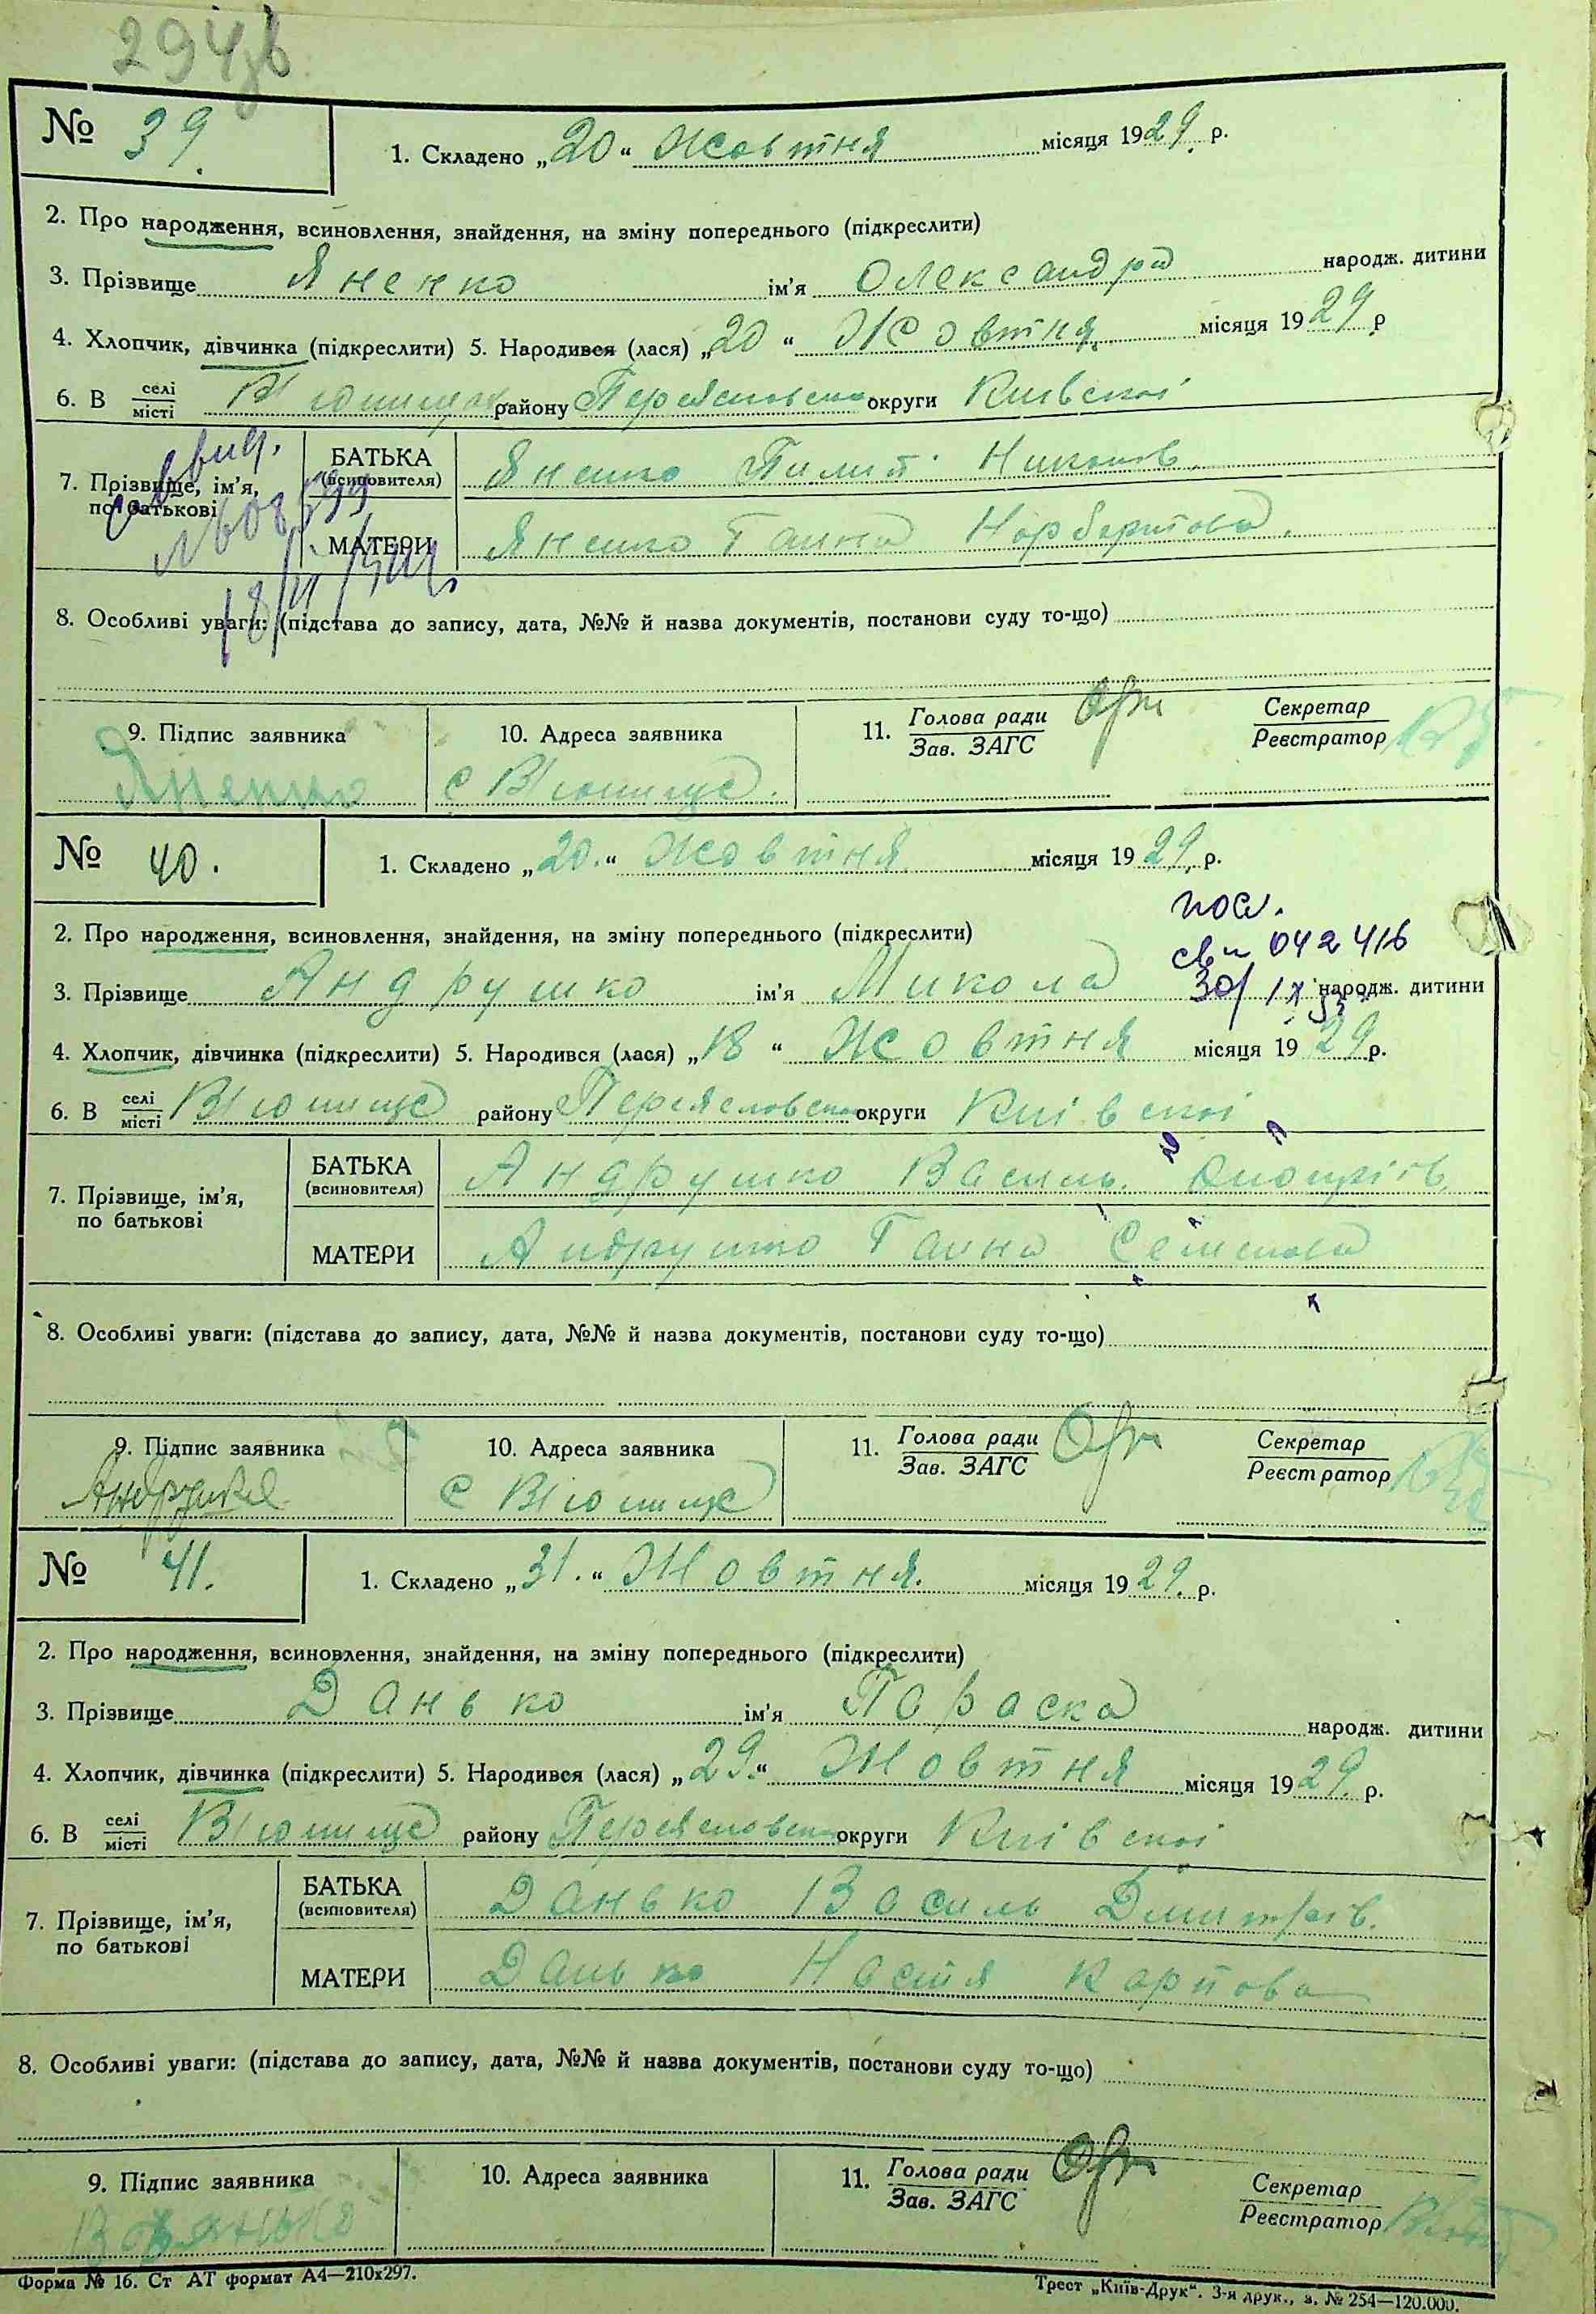 294зв
№ 39. 1. Складено „20“ Жовтня місяця 1929. р.
2. Про народження, всиновлення, знайдення, на зміну попереднього (підкреслити)
3. Прізвище Яненко ім'я Олександра народж. дитини
4. Хлопчик, дівчинка (підкреслити) 5. Народився (лася) „20“ Жовтня. місяця 1929 р
6. В селі/місті Вюнищах району Переясловсько округи Київскої
Свид.
7. Прізвище, ім'я, по батькові
БАТЬКА (всиновителя) Яненко Пилип Никонів.
МАТЕРИ Яненко Ганна Норбертова.
8. Особливі уваги: (підстава до запису, дата, №№ й назва документів, постанови суду то-що)
9. Підпис заявника 10. Адреса заявника 11. Голова ради / Зав. ЗАГС Секретар / Реєстратор
Яненко с Вюнище.
№ 40. 1. Складено „20.“ Жовтня місяця 1929. р.
2. Про народження, всиновлення, знайдення, на зміну попереднього (підкреслити)
св 042416
3. Прізвище Андрушко ім'я Микола народж. дитини
30/IX
4. Хлопчик, дівчинка (підкреслити) 5. Народився (лася) „18“ Жовтня місяця 1929 р.
6. В селі/місті Вюнище району Переясловсько округи Київскої
7. Прізвище, ім'я, по батькові
БАТЬКА (всиновителя) Андрушко Василь
МАТЕРИ Андрушко Ганна Семенова
8. Особливі уваги: (підстава до запису, дата, №№ й назва документів, постанови суду то-що)
9. Підпис заявника 10. Адреса заявника 11. Голова ради / Зав. ЗАГС Секретар / Реєстратор
с Вюнище
№ 41. 1. Складено „31.“ Жовтня. місяця 1929. р.
2. Про народження, всиновлення, знайдення, на зміну попереднього (підкреслити)
3. Прізвище Данько ім'я Параска народж. дитини
4. Хлопчик, дівчинка (підкреслити) 5. Народився (лася) „29.“ Жовтня місяця 1929. р.
6. В селі/місті Вюнище району Переясловсько округи Київскої
7. Прізвище, ім'я, по батькові
БАТЬКА (всиновителя) Данько Василь Дмитрів.
МАТЕРИ Данько Настя Карпова
8. Особливі уваги: (підстава до запису, дата, №№ й назва документів, постанови суду то-що)
9. Підпис заявника 10. Адреса заявника 11. Голова ради / Зав. ЗАГС Секретар / Реєстратор
Форма № 16. Ст АТ формат А4—210х297. Трест „Київ-Друк“. 3-я друк., з. № 254—120.000.